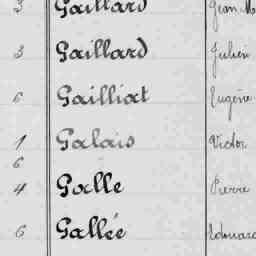 3 Gaillard Jean M
3 Gaillard Julien
6 Gailliat Eugène
1 Galais Victor
6
4 Galle Pierre
6 Gallée Edouard